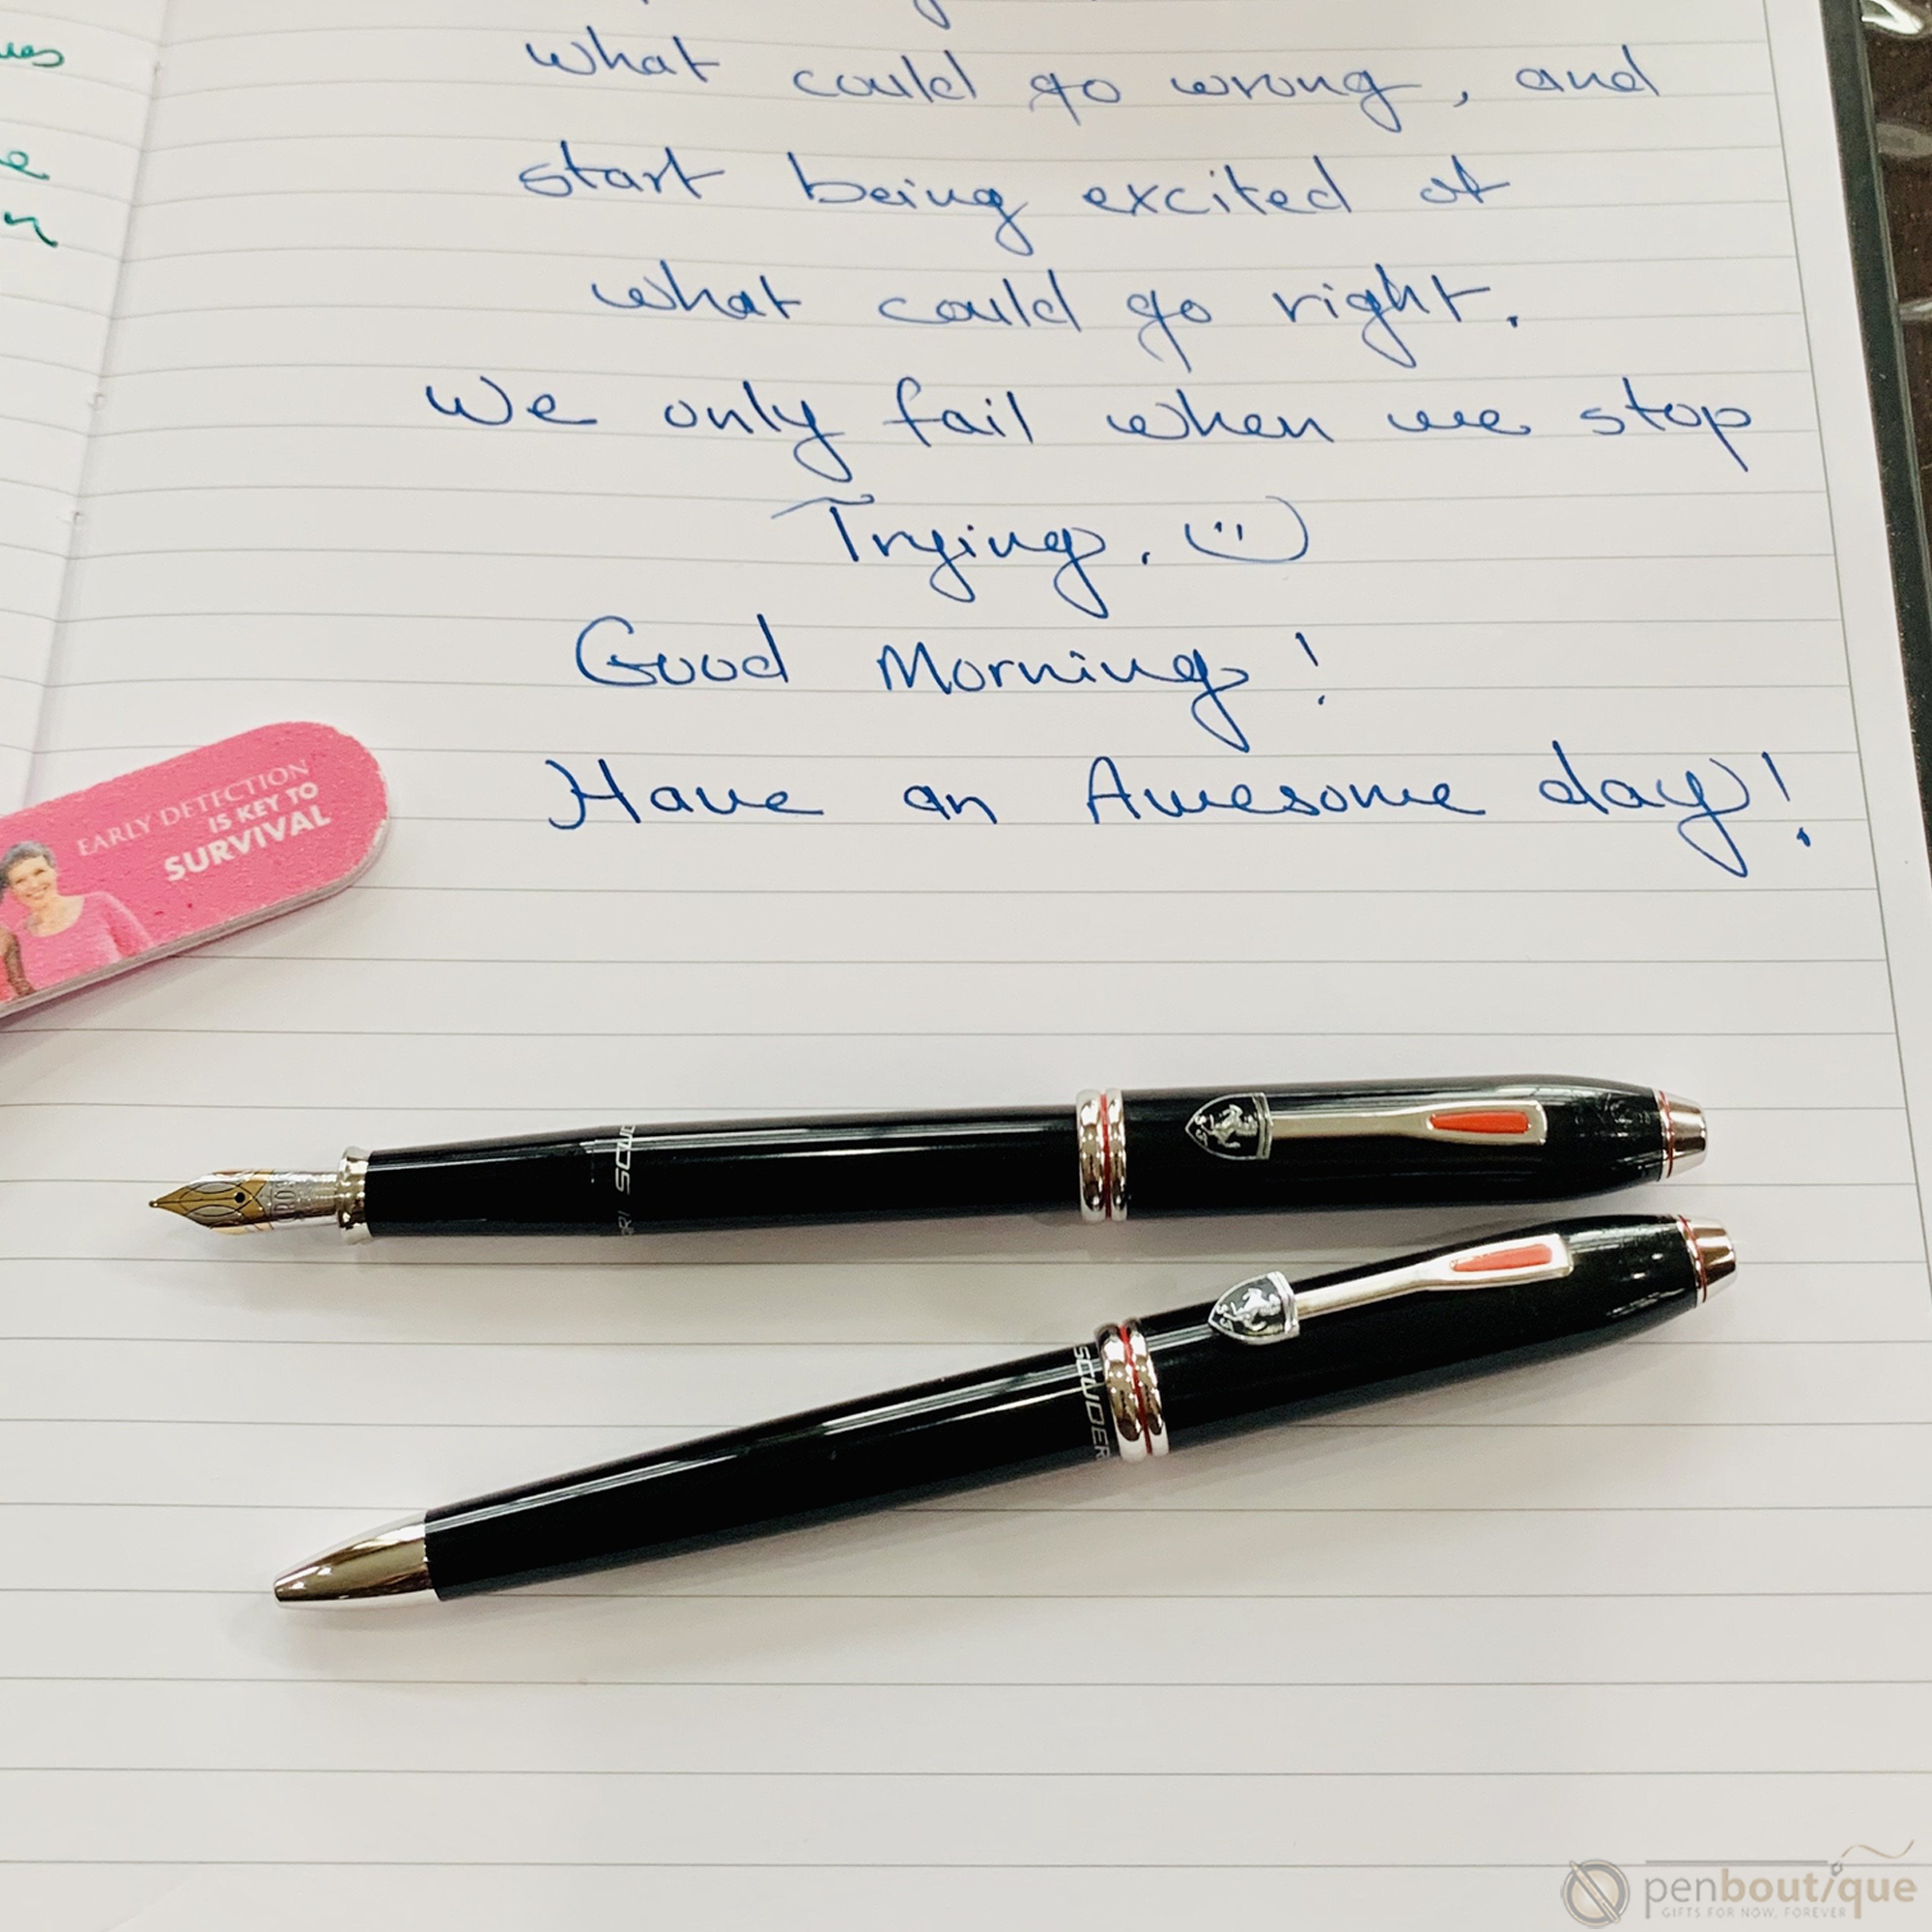 what could go wrong, and
start being excited at
what could go right.
We only fail when we stop
Trying.
Good Morning!
Have an Awesome day!
EARLY DETECTION
IS KEY TO
SURVIVAL
penboutique
GIFTS FOR NOW, FOREVER